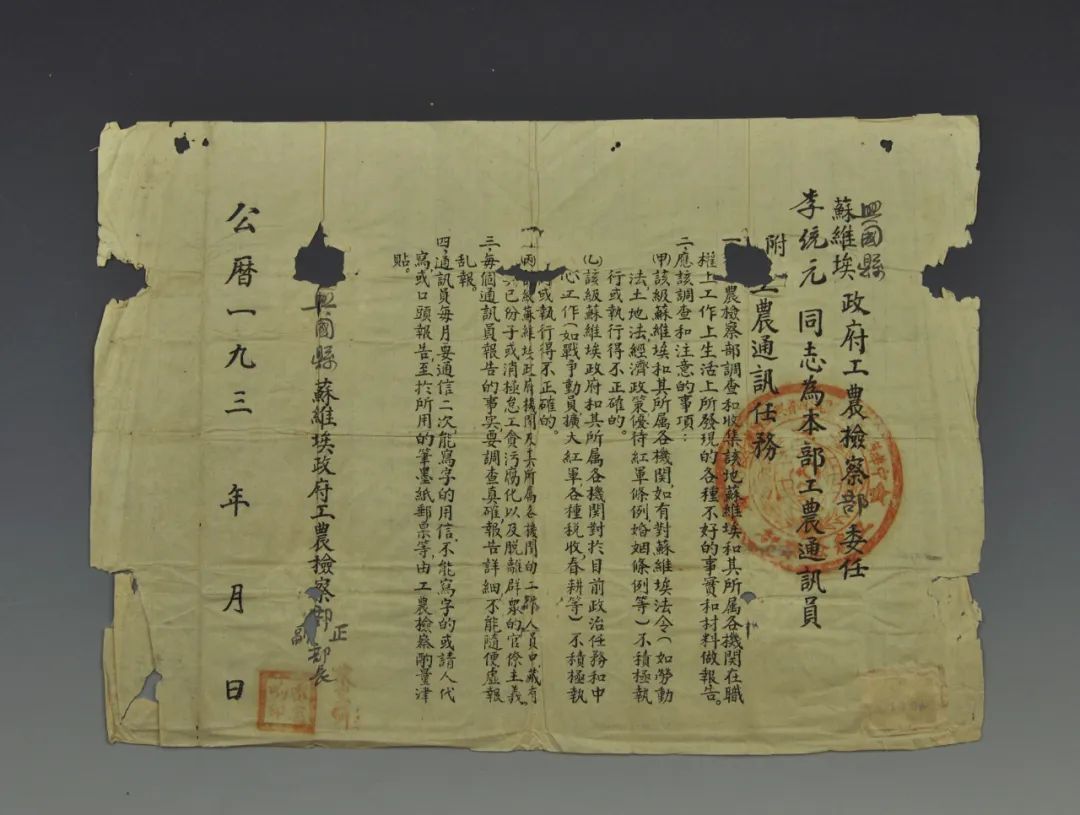 興國縣
蘇維埃政府工農檢察部委任
李統元同志為本部工農通訊員
附 工農通訊任務
一 農檢察部調查和收集該地蘇維埃和其所属各機関在職
權上工作上生活上所發現的各種不好的事實和材料做報告。
二、應該調查和注意的事項：
(甲)該級蘇維埃和其所属各機関，如有對蘇維埃法令（如勞動
法，土地法，經濟政策，優待紅軍條例，婚姻條例等）不積極執
行或執行得不正確的。
(乙)該級蘇維埃政府和其所属各機関對於目前政治任務和中
心工作（如戰爭動員，擴大紅軍，各種税收，春耕等）不積極執
或執行得不正確的。
級蘇維埃政府機関及其所屬各機関的工作人員中藏有
己份子或消極怠工貪污腐化以及脫離群眾的官僚主義。
三、每個通訊員報告的事实要調查真確，報告詳細，不能隨便虛報
乱報。
四、通訊員每月要通信二次，能寫字的用信，不能寫字的或請人代
寫或口頭報告，至於所用的筆墨紙郵票等，由工農檢察酌量津
貼。
興國縣蘇維埃政府工農檢察部 正 副 部長
公曆一九三 年 月 日